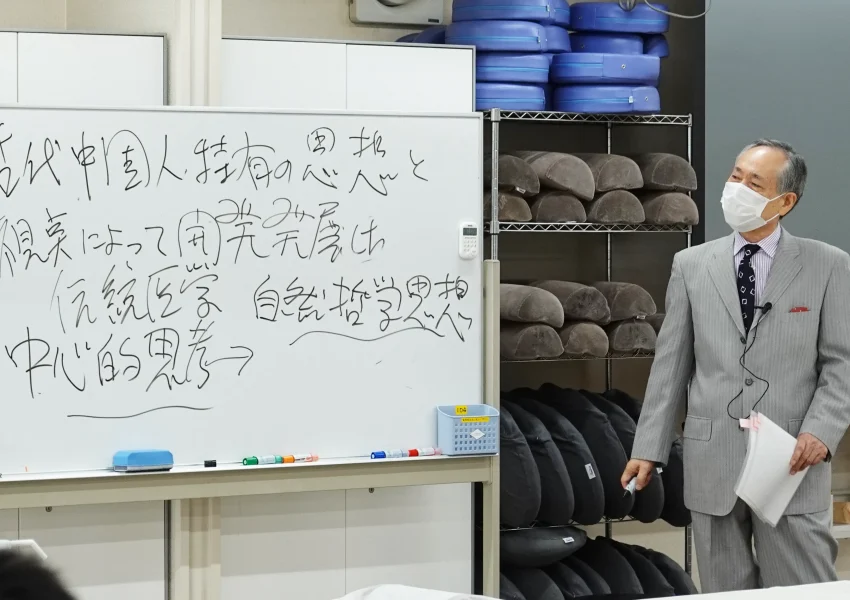 古代中国人特有の思想と
視点によって開発発展した
伝統医学 自然哲学思想
中心的思考→